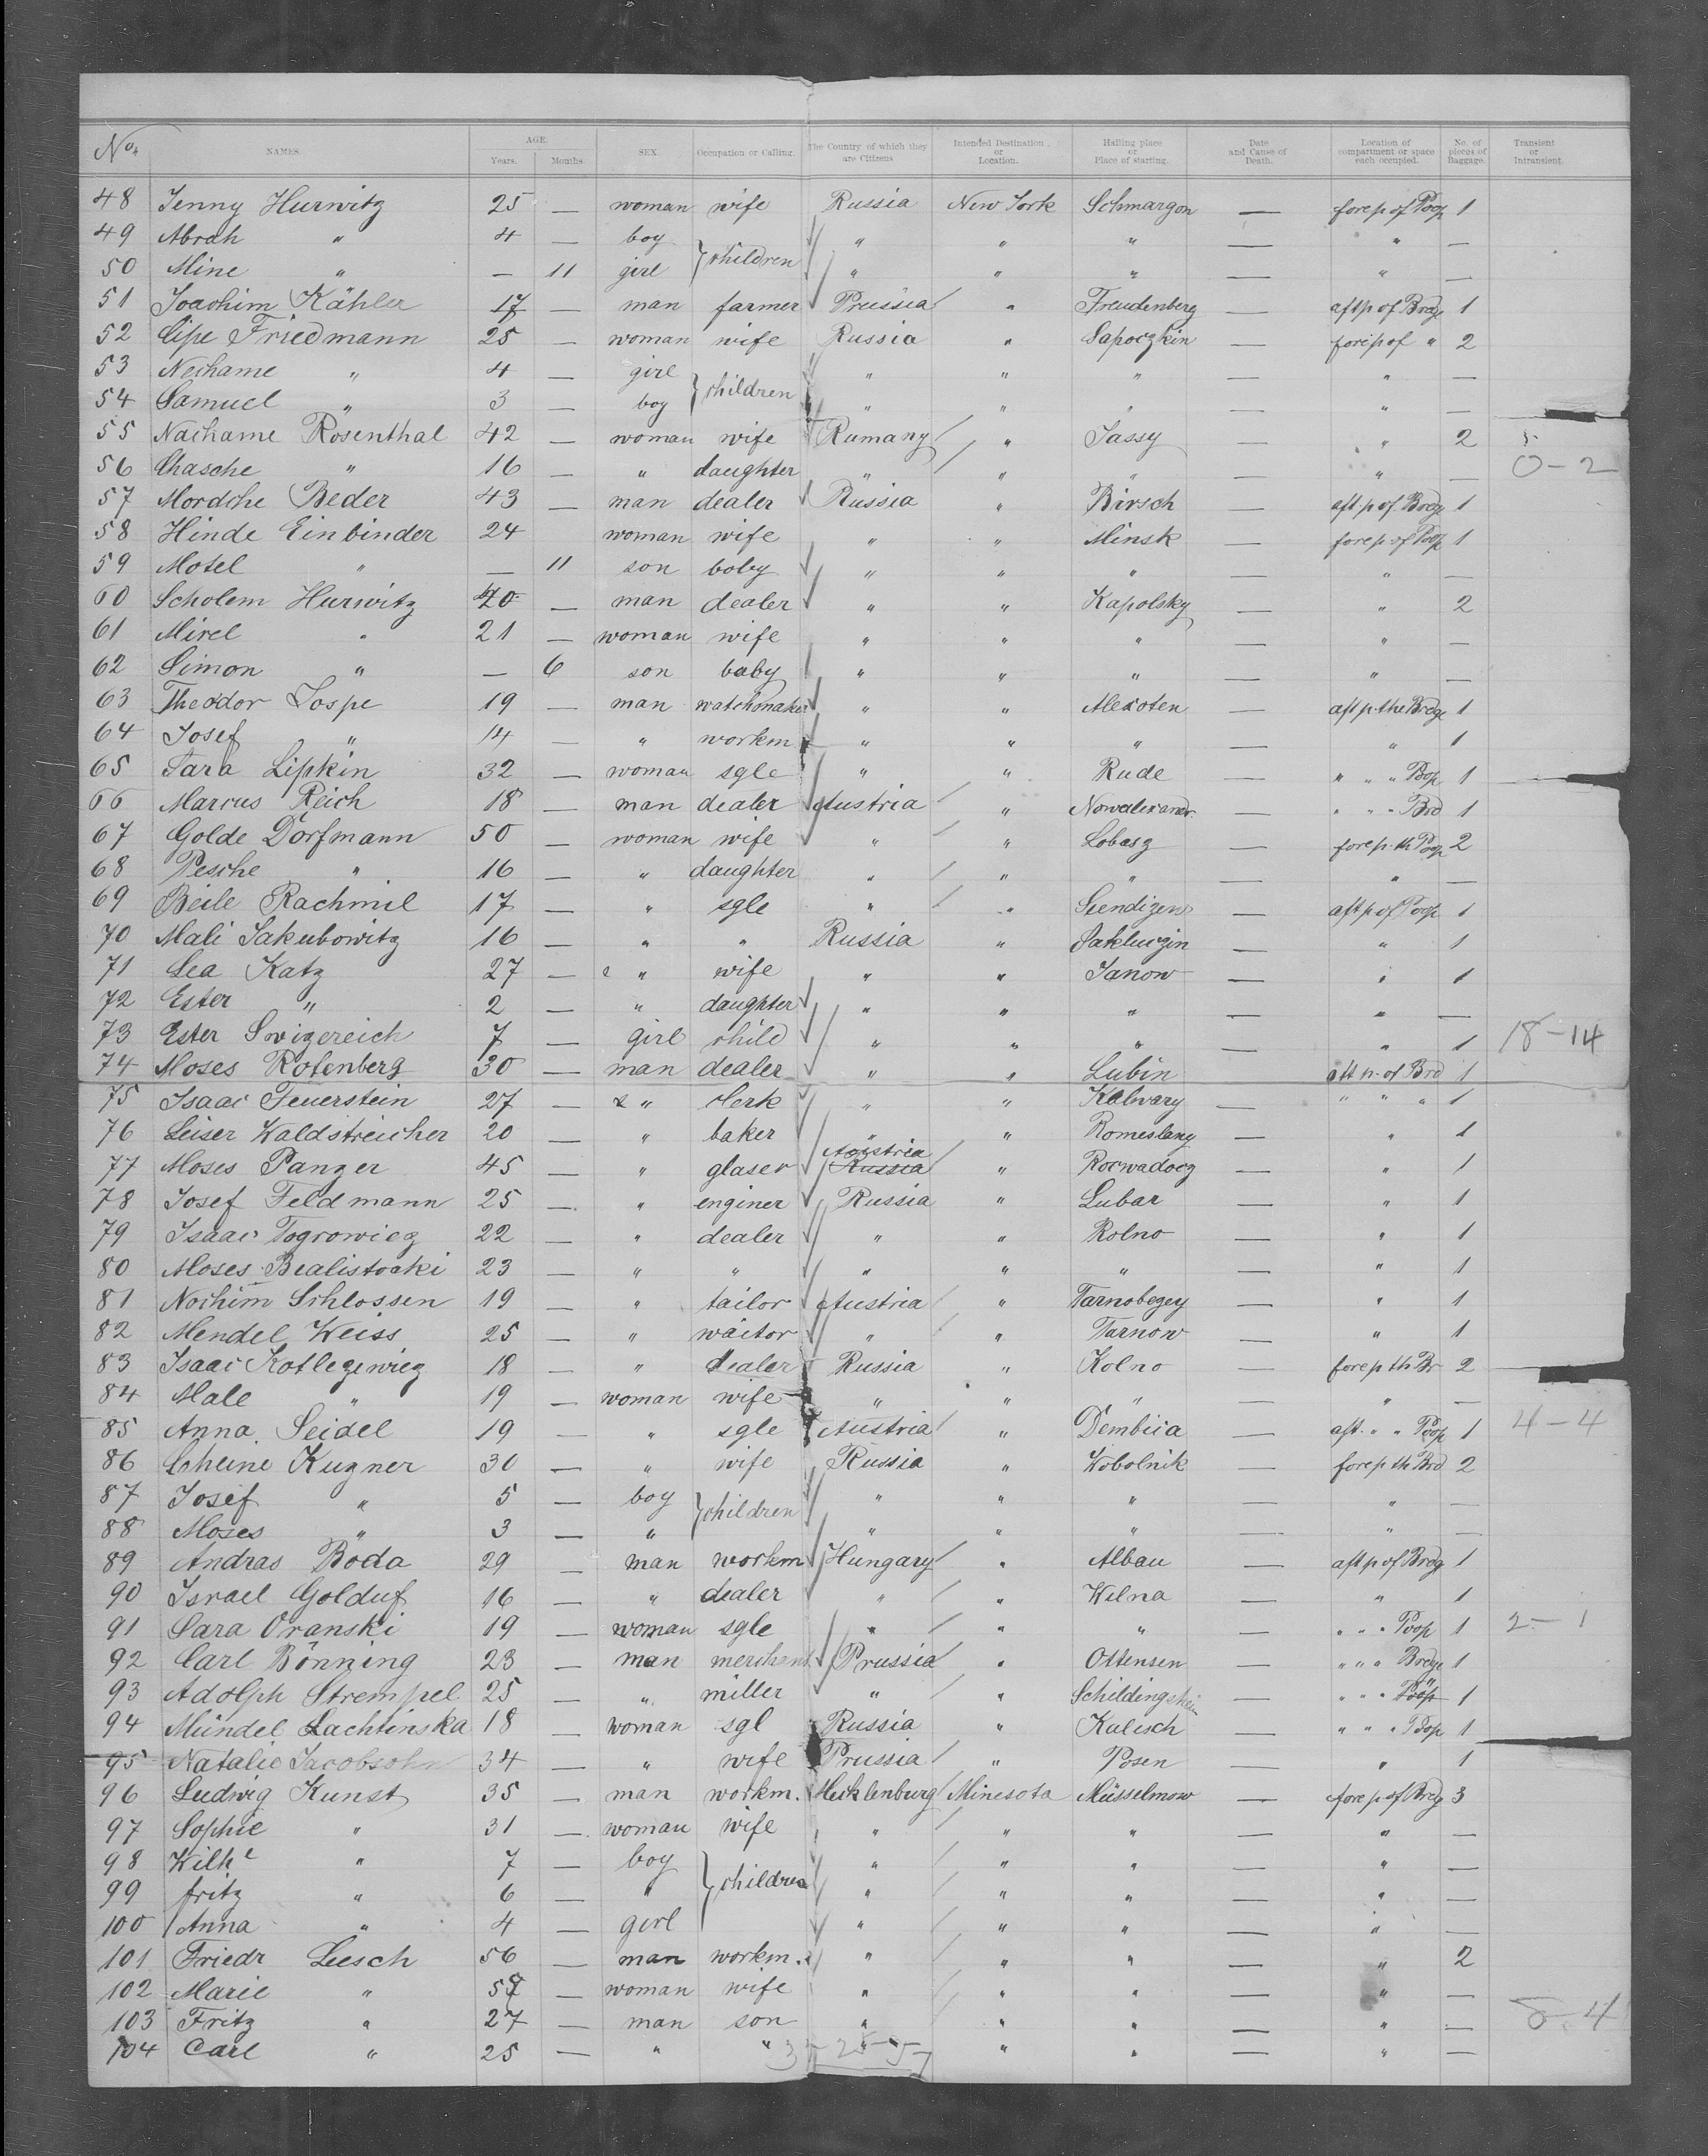 No. NAMES. AGE. Years. Months. SEX. Occupation or Calling. The Country of which they are Citizens Intended Destination or Location. Hailing place or Place of starting. Date and Cause of Death. Location of compartment or space each occupied. No. of pieces of Baggage. Transient or Intransient.
48 Jenny Hurwitz 25 — woman wife Russia New York Schmargon — forep of Poop 1
49 Abrah " 4 — boy children " " " — " —
50 Mine " — 11 girl " " " — " —
51 Joachim Kähler 17 — man farmer Prussia " Freudenberg — aftp of Brdge 1
52 Cipe Friedmann 25 — woman wife Russia " Sapoczkin — forep of " 2
53 Nechame " 4 — girl children " " " — " —
54 Samuel " 3 — boy " " " — " —
55 Nachame Rosenthal 42 — woman wife Rumany " Jassy — " 2
56 Chasche " 16 — " daughter " " " — " — 0-2
57 Mordche Beder 43 — man dealer Russia " Birsch — aft p of Brdge 1
58 Hinde Einbinder 24 woman wife " " Minsk — forep of Poop 1
59 Motel " — 11 son boby " " " — " —
60 Scholem Hurwitz 20 — man dealer " " Kapolsky — " 2
61 Mirel " 21 — woman wife " " " — " —
62 Simon " — 6 son baby " " " — " —
63 Theodor Jospe 19 — man watchmaker " " Alexoten — aft p. the Brdge 1
64 Josef " 14 — " workm " " " — " 1
65 Sara Lipkin 32 — woman sgle " " Rude — " " " Poop 1
66 Marcus Reich 18 — man dealer Austria " Nowalexandr. — " " " Brd 1
67 Golde Dorfmann 50 — woman wife " " Lobasz — forep. th Poop 2
68 Pesche " 16 — " daughter " " " — " —
69 Beile Rachmil 17 — " sgle " " Sendizew — aft p of Poop 1
70 Mali Jakubowitz 16 — " " Russia " Sakluczin — " 1
71 Lea Katz 27 — " wife " " Janow — " 1
72 Ester " 2 — " daughter " " " — " —
73 Ester Swigereich 7 — girl child " " " — " 1 18-14
74 Moses Rotenberg 30 — man dealer " " Lubin — aft p. of Brd 1
75 Isaac Feuerstein 27 — " clerk " " Kalwary — " " " 1
76 Leiser Waldstreicher 20 — " baker " " Romeslany — " 1
77 Moses Panzer 45 — " glaser Austria Russia " Rozwadocz — " 1
78 Josef Feldmann 25 — " enginer Russia " Lubar — " 1
79 Isaac Togrowicz 22 — " dealer " " Kolno — " 1
80 Moses Bealistocki 23 — " " " " " — " 1
81 Nochim Schlossen 19 — " tailor Austria " Tarnobegey — " 1
82 Mendel Weiss 25 — " waitor " " Tarnow — " 1
83 Isaac Kotlegewicz 18 — " dealer Russia " Kolno — forep th Br 2
84 Male " 19 — woman wife " " " — " —
85 Anna Seidel 19 — " sgle Austria " Dembica — aft. " " Poop 1 4-4
86 Scheine Kugner 30 — " wife Russia " Wobolnik — forep th Brd 2
87 Josef " 5 — boy children " " " — " —
88 Moses " 3 — " " " " — " —
89 Andras Boda 29 — man workm Hungary " Albau — aft p of Brdg 1
90 Israel Golduf 16 — " dealer " " Wilna — " 1
91 Sara Oranski 19 — woman sgle " " " — " " " Poop 1 2-1
92 Carl Bönning 23 — man merchant Prussia " Ottensen — " " " Brdge 1
93 Adolph Strempel 25 — " miller " " Schildingshein — " " " Poop 1
94 Mündel Lachtinska 18 — woman sgl Russia " Kalisch — " " " Poop 1
95 Natalie Jacobsohn 34 — " wife Prussia " Posen — " 1
96 Ludwig Kunst 35 — man workm. Mecklenburg Minesota Müsselmow — forep of Brdg 3
97 Sophie " 31 — woman wife " " " — " —
98 Wilh " 7 — boy children " " " — " —
99 fritz " 6 — " " " " — " —
100 Anna " 4 — girl " " " — " —
101 Friedr Leesch 56 — man workm. " " " — " 2
102 Marie " 57 — woman wife " " " — " —
103 Fritz " 27 — man son " " " — " — 8-4
104 Carl " 25 — " " " " " — " —